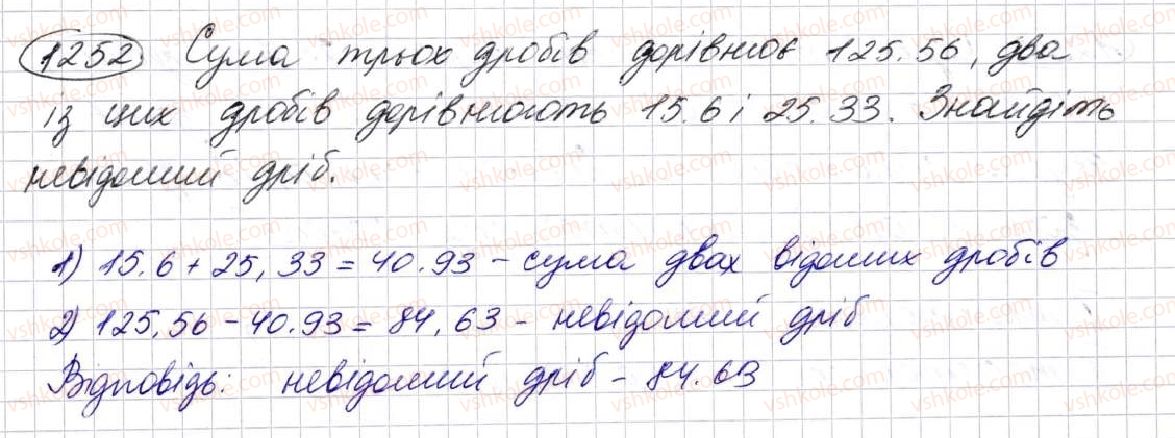 1252 Сума трьох дробів дорівнює 125.56, два
із цих дробів дорівнюють 15.6 і 25.33. Знайдіть
невідомий дріб.
1) 15.6 + 25,33 = 40.93 - сума двох відомих дробів
2) 125,56 - 40.93 = 84,63 - невідомий дріб
Відповідь: невідомий дріб - 84.63